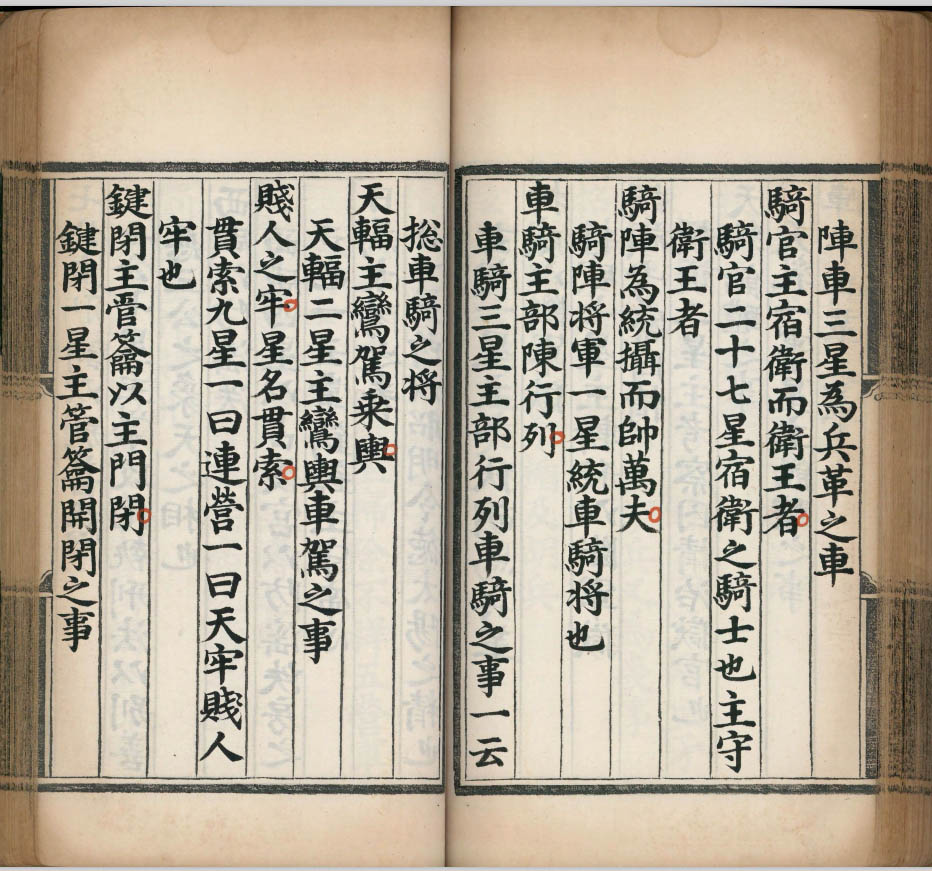 陣車三星為兵革之車
騎官主宿衛而衛王者
騎官二十七星宿衛之騎士也主守
衛王者
騎陣為統攝而帥萬夫
騎陣将軍一星統車騎将也
車騎主部陳行列
車騎三星主部行列車騎之事一云
捴車騎之将
天輻主鸞駕乘輿
天輻二星主鸞輿車駕之事
賤人之牢星名貫索
貫索九星一曰連營一曰天牢賤人
牢也
鍵閉主管籥以主門閉
鍵閉一星主管籥開閉之事